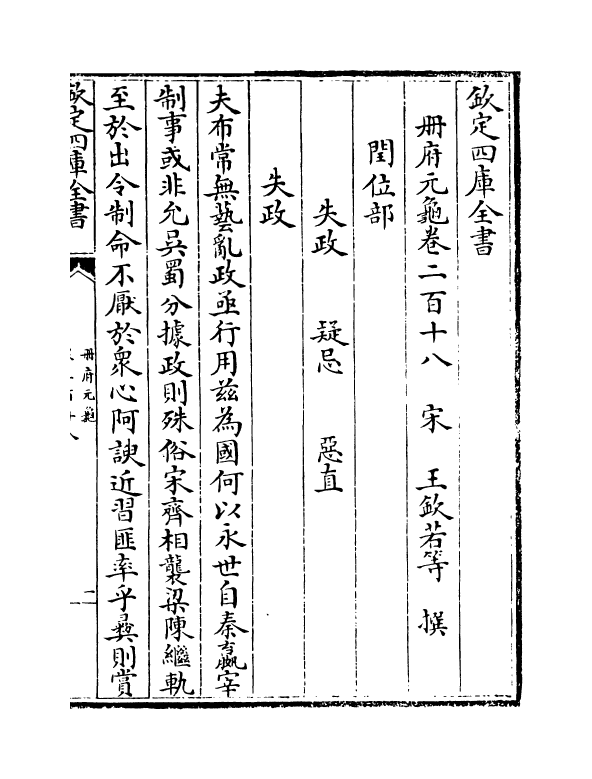 欽定四庫全書
冊府元龜卷二百十八　宋　王欽若等　撰
閏位部
失政　疑忌　惡直
失政
夫布常無藝亂政亟行用兹為國何以永世自秦嬴宰
制事或非允吳蜀分據政則殊俗宋齊相襲梁陳繼軌
至於出令制命不厭於衆心阿諛近習匪率乎彞則賞
欽定四庫全書
冊府元龜